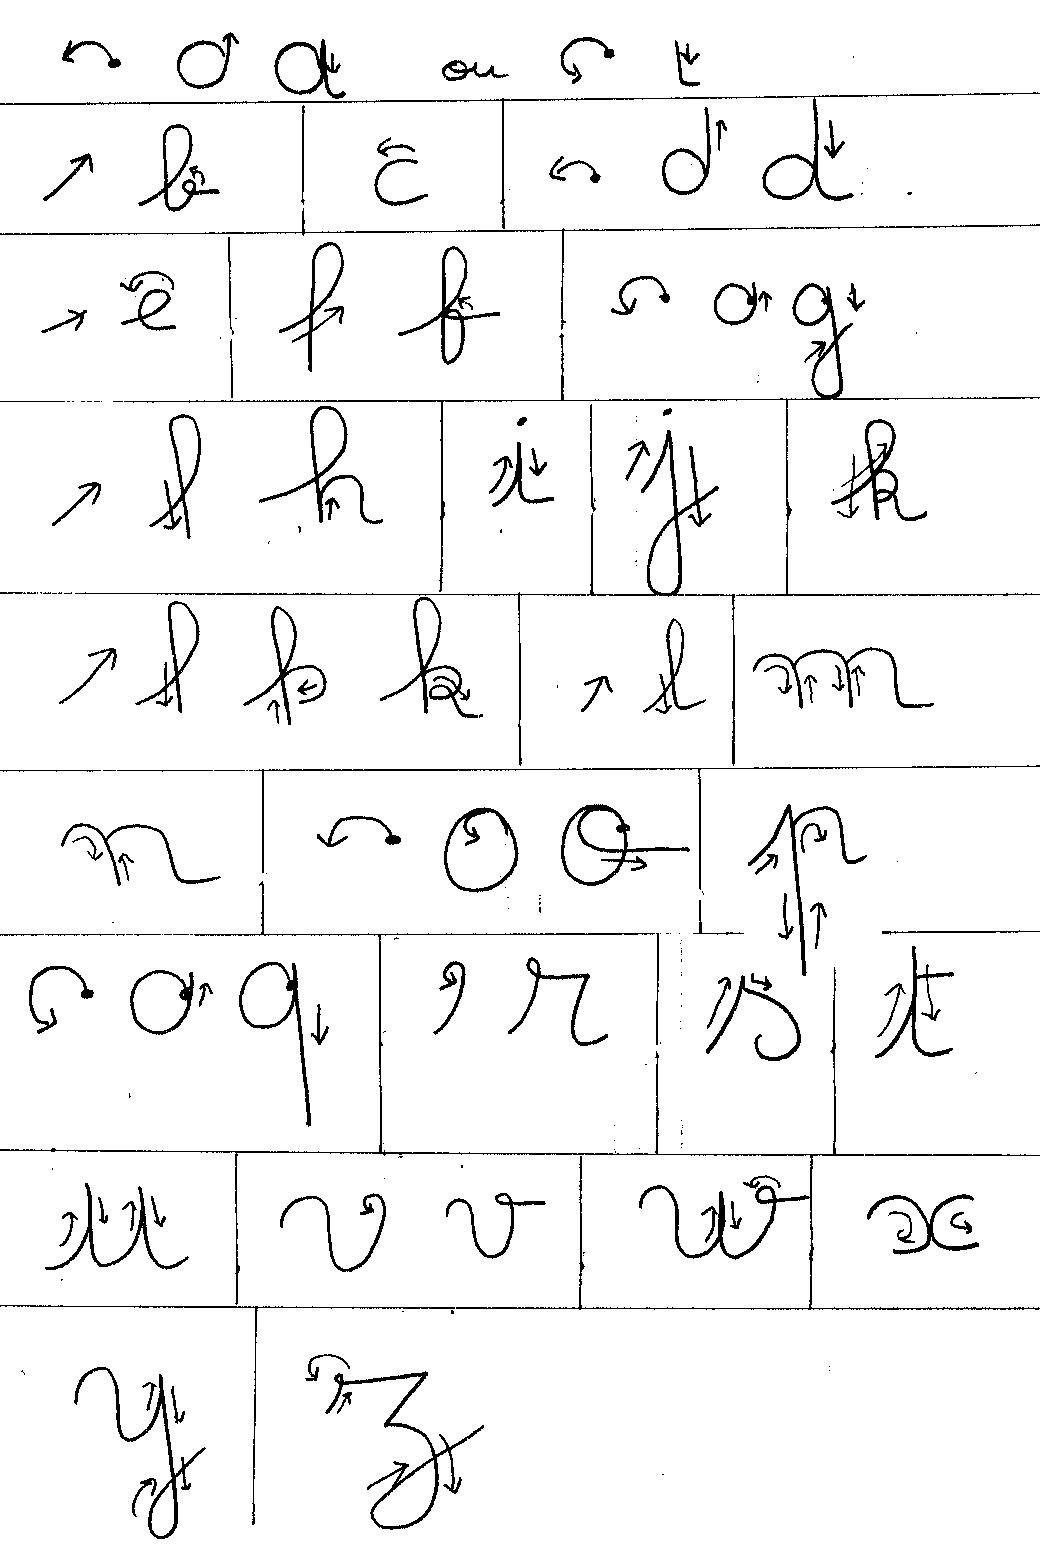 a ou
b c d d
e f g
h i j k
k l m
n o o p
q r s t
u v v w x
y z